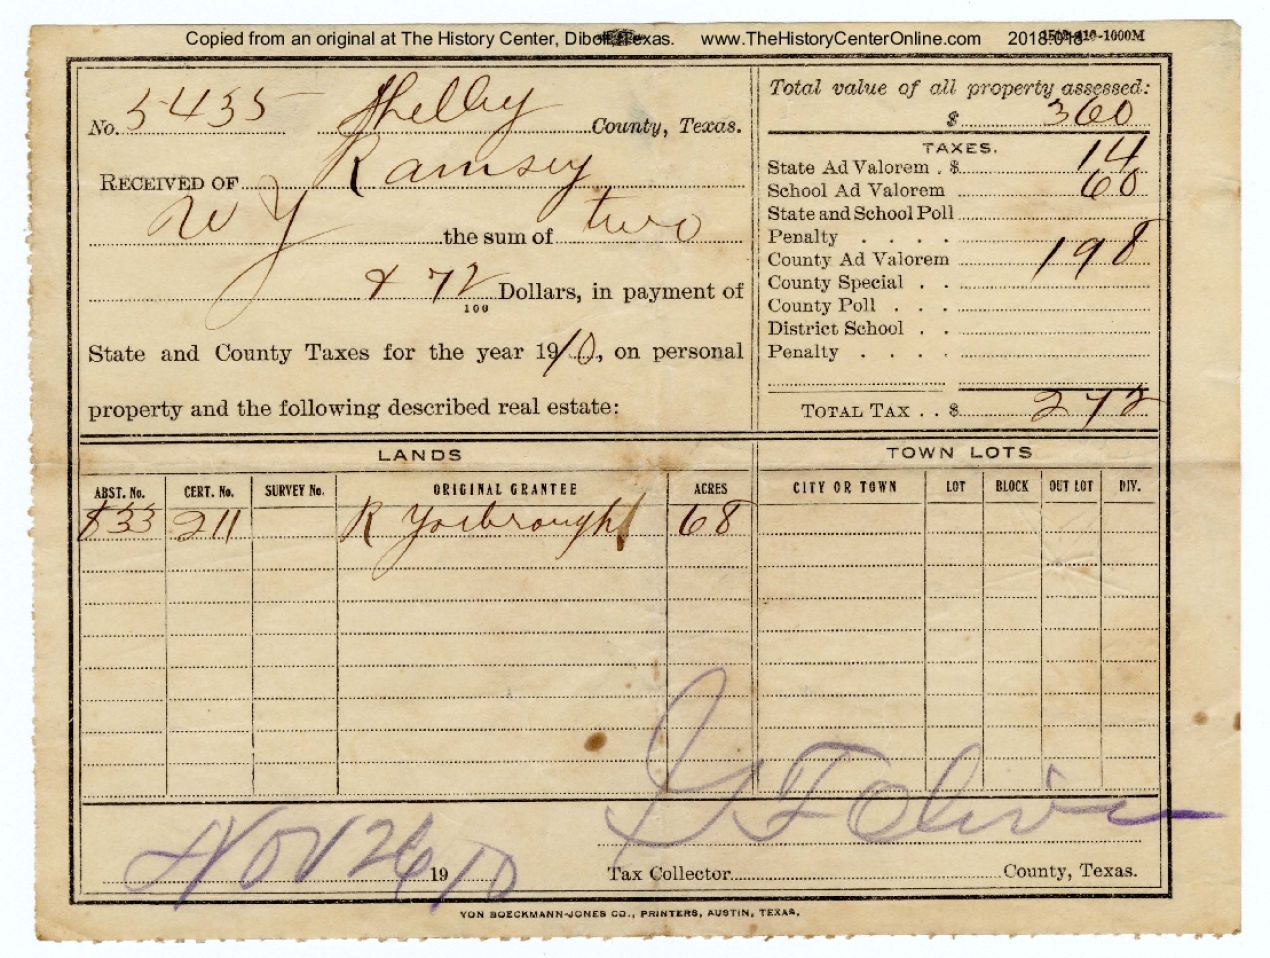 Copied from an original at The History Center, Diboll, Texas. www.TheHistoryCenterOnline.com 2018:018
-1000M
No. 5435 Shelby County, Texas.
RECEIVED OF Ramsey
W J the sum of two
& 72/100 Dollars, in payment of
State and County Taxes for the year 1910, on personal
property and the following described real estate:
Total value of all property assessed:
$ 360
TAXES.
State Ad Valorem . $ 14
School Ad Valorem 60
State and School Poll
Penalty . . . .
County Ad Valorem 198
County Special . .
County Poll . . .
District School . .
Penalty . . . .
TOTAL TAX . . $ 272
LANDS
ABST. No. CERT. No. SURVEY No. ORIGINAL GRANTEE ACRES
833 211 R Yorbrough 68
TOWN LOTS
CITY OR TOWN LOT BLOCK OUT LOT DIV.
Nov 26 1910
Tax Collector County, Texas.
VON BOECKMANN-JONES CO., PRINTERS, AUSTIN, TEXAS.